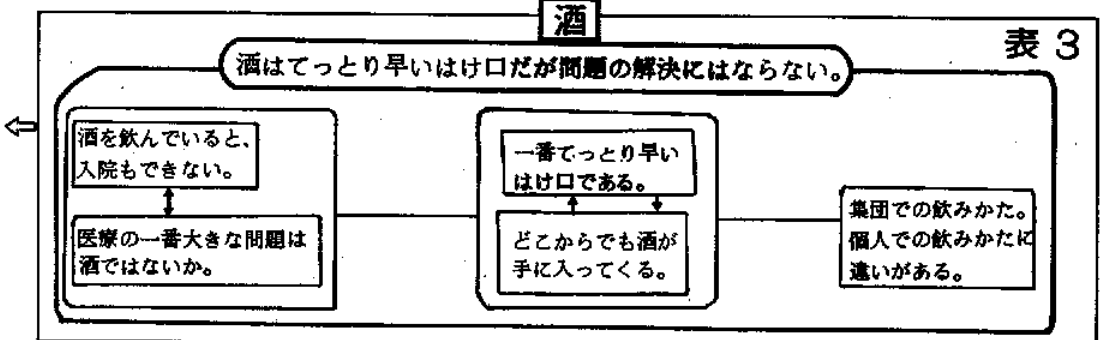 酒
表3
酒はてっとり早いはけ口だが問題の解決にはならない。
酒を飲んでいると、
入院もできない。
医療の一番大きな問題は
酒ではないか。
一番てっとり早い
はけ口である。
どこからでも酒が
手に入ってくる。
集団での飲みかた。
個人での飲みかたに
違いがある。